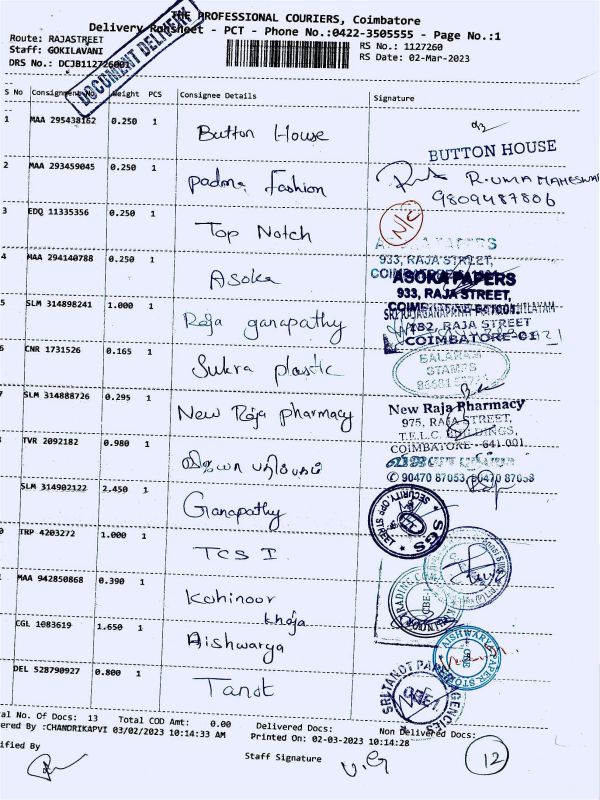 THE PROFESSIONAL COURIERS, Coimbatore
Delivery Runsheet - PCT - Phone No.:0422-3505555 - Page No.:1
Route: RAJASTREET
Staff: GOKILAVANI
DRS No.: DCJB112726001
RS No.: 1127260
RS Date: 02-Mar-2023
DOCUMENT DELIVERY
S No Consignment No. Weight PCS Consignee Details Signature
1 MAA 295438162 0.250 1 Button House
BUTTON HOUSE
2 MAA 293459045 0.250 1 Padma Fashion
R.UMA MAHESWARI
9809487806
3 EDQ 11335356 0.250 1 Top Notch
N/C
4 MAA 294140788 0.250 1 Asoka
933, RAJA STREET,
ASOKA PAPERS
933, RAJA STREET,
5 SLM 314898241 1.000 1 Raja ganapathy
182, RAJA STREET
COIMBATORE-01
6 CNR 1731526 0.165 1 Sukra plastic
BALARAM
STAMPS
7 SLM 314888726 0.295 1 New Raja pharmacy
New Raja Pharmacy
975, RAJA STREET,
T.E.L.C. BUILDINGS,
COIMBATORE - 641 001.
TVR 2092182 0.980 1 விஜயா பதிப்பகம்
90470 87053, 90470 87058
SLM 314902122 2.450 1 Ganapathy
SGS
SECURITY
TRP 4203272 1.000 1 TCS I
MAA 942850868 0.390 1 Kohinoor
TRADING COM
CGL 1083619 1.650 1 khoja
Aishwarya
AISHWARYA PAPER STORE
DEL 528790927 0.800 1 Tanot
SRI TANOT PAPER AGENCIES
CBE-1
al No. Of Docs: 13 Total COD Amt: 0.00 Delivered Docs: Non Delivered Docs:
ered By :CHANDRIKAPVI 03/02/2023 10:14:33 AM Printed On: 02-03-2023 10:14:28
ified By Staff Signature
V.G
12